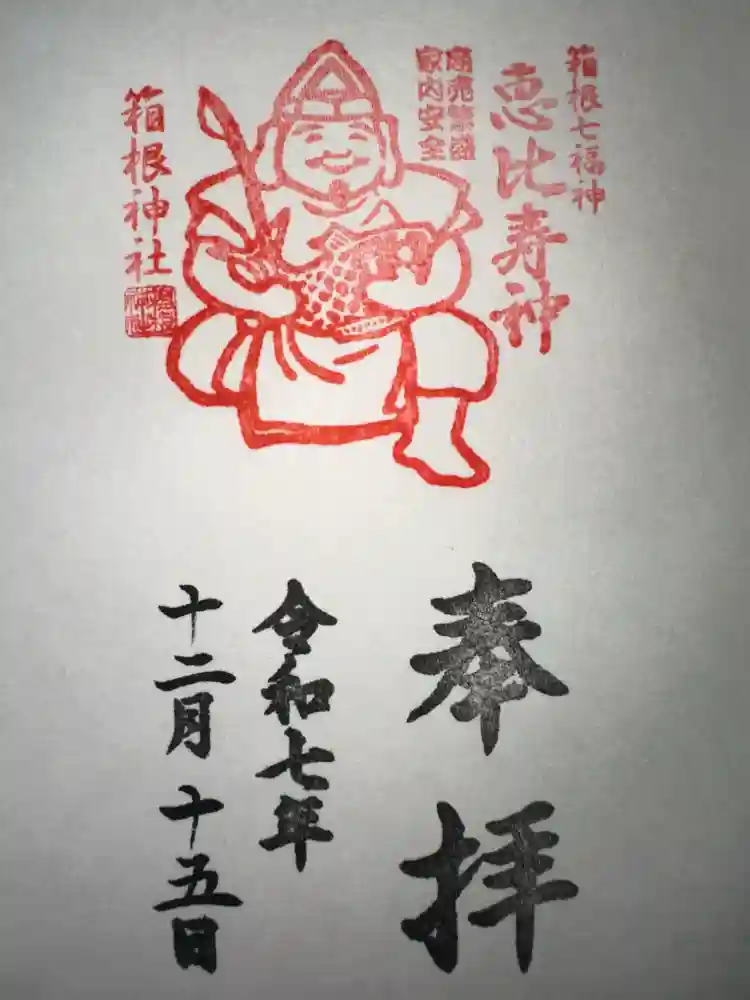 箱根七福神
恵比寿神
商売繁盛
家内安全
箱根神社
奉拝
令和七年
十二月十五日